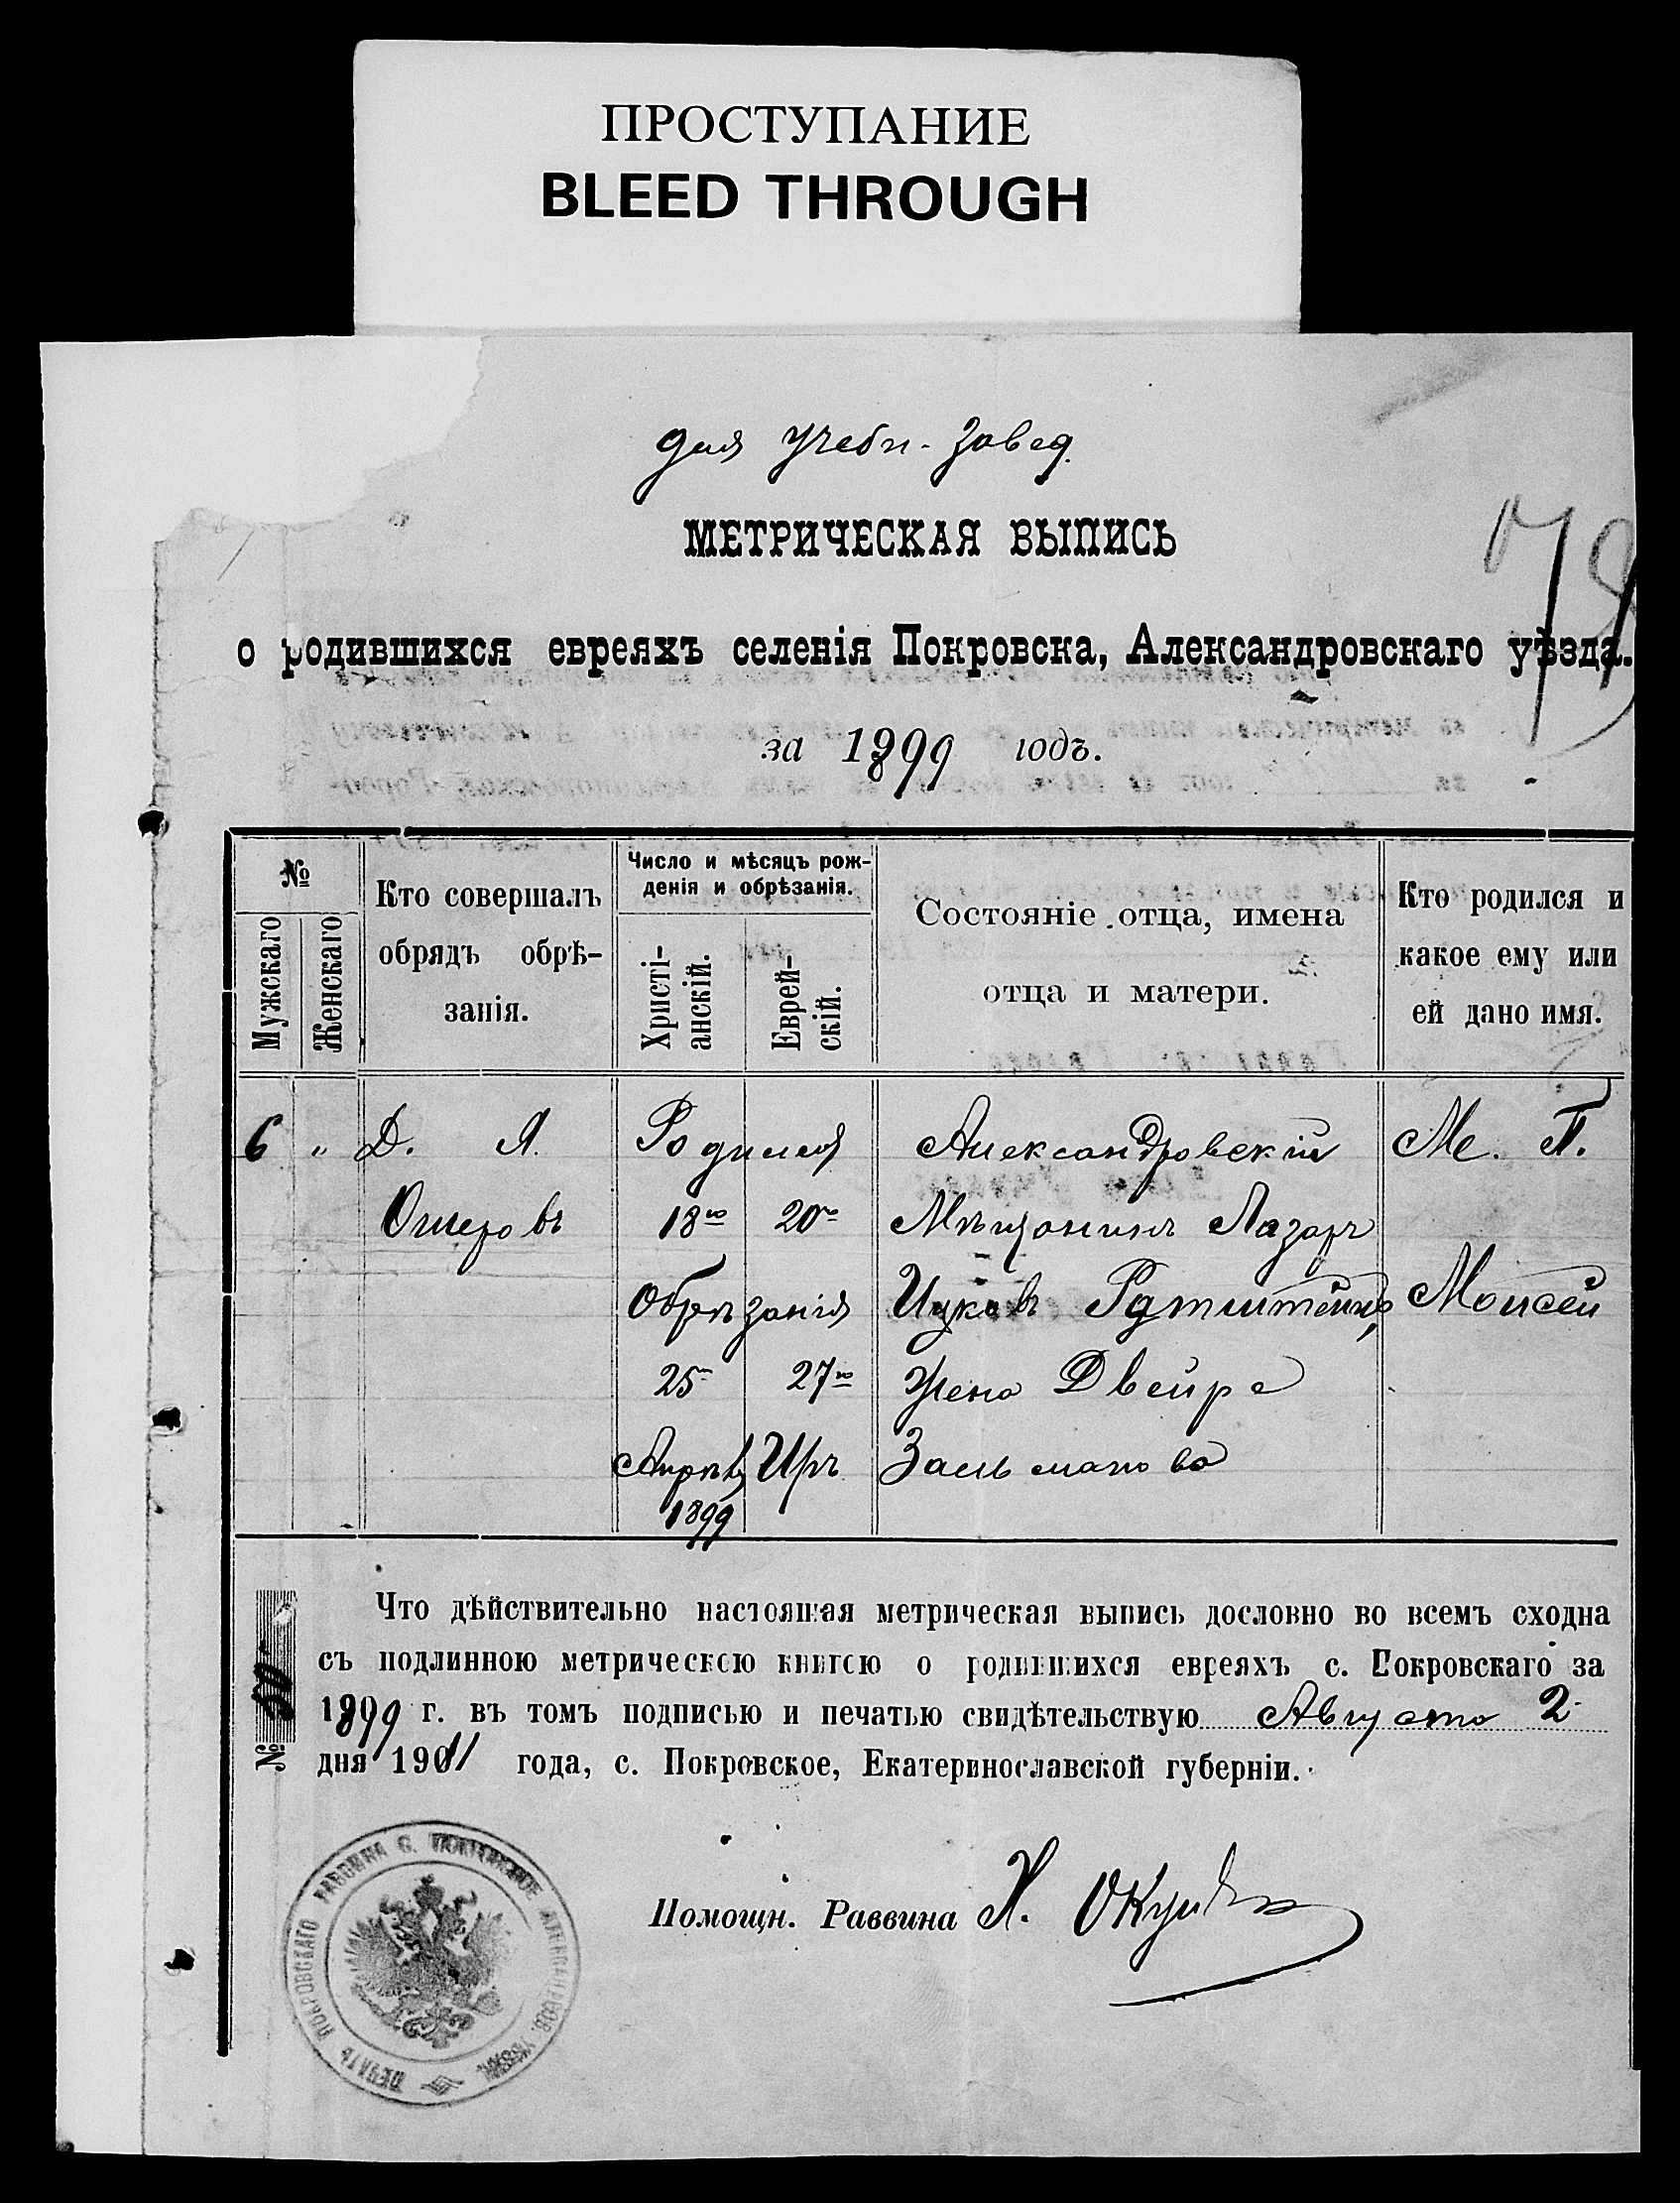 ПРОСТУПАНИЕ
BLEED THROUGH
для учебн. завед.
МЕТРИЧЕСКАЯ ВЫПИСЬ
о родившихся евреяхъ селенія Покровска, Александровскаго уѣзда.
за 1899 годъ.
№
Мужскаго
Женскаго
Кто совершалъ
обрядъ обрѣ-
занія.
Число и мѣсяцъ рож-
денія и обрѣзанія.
Христі-
анскій.
Еврей-
скій.
Состояніе отца, имена
отца и матери.
Кто родился и
какое ему или
ей дано имя.
6 " Д. Я. Родился Александровскій М. П.
Ошеровъ 18го 20го Мѣщанинъ Лазарь
Обрѣзанія Ицковъ Моисей
25 27го жена Двейра
Апрѣля Иръ Залманова
1899
Что дѣйствительно настоящая метрическая выпись дословно во всемъ сходна
съ подлинною метрическою книгою о родившихся евреяхъ с. Покровскаго за
1899 г. въ томъ подписью и печатью свидѣтельствую Августа 2
дня 1911 года, с. Покровское, Екатеринославской губерніи.
№ 50
Помощн. Раввина
ПЕЧАТЬ ПОКРОВСКАГО РАВВИНА С.